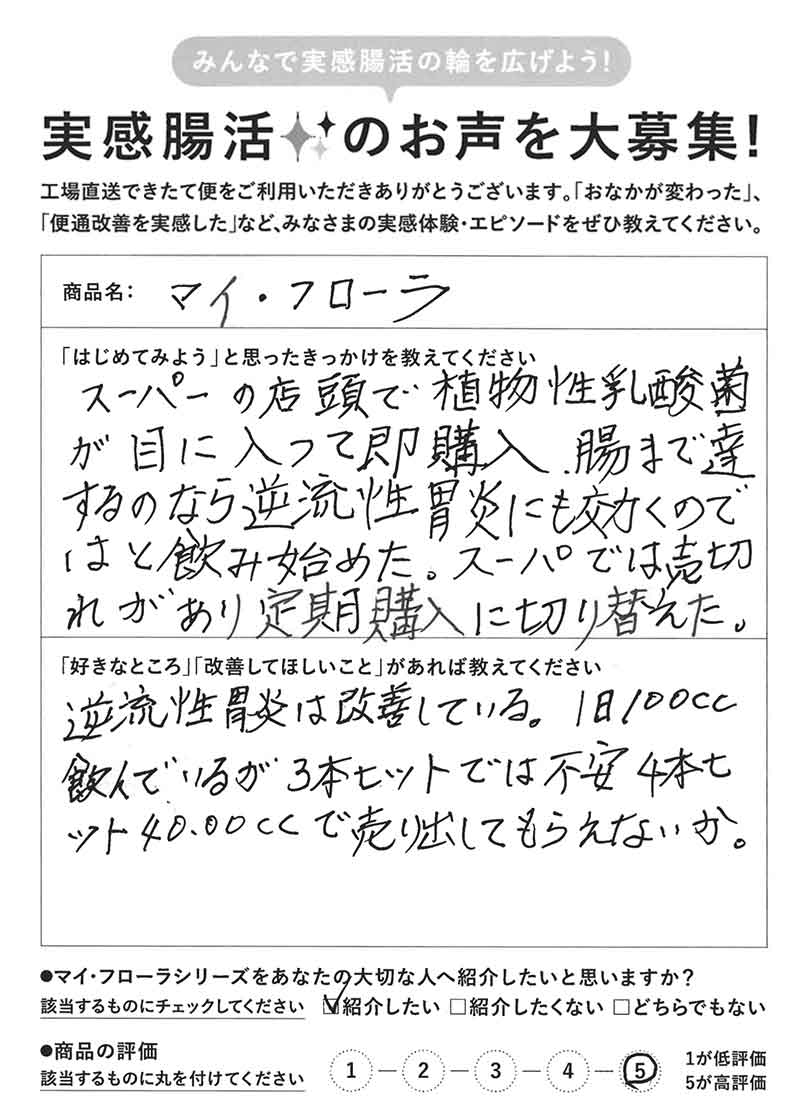 みんなで実感腸活の輪を広げよう!
実感腸活のお声を大募集!
工場直送できたて便をご利用いただきありがとうございます。「おなかが変わった」、
「便通改善を実感した」など、みなさまの実感体験・エピソードをぜひ教えてください。
商品名: マイ・フローラ
「はじめてみよう」と思ったきっかけを教えてください
スーパーの店頭で植物性乳酸菌
が目に入って即購入.腸まで達
するのなら逆流性胃炎にも効くので
はと飲み始めた。スーパでは売切
れがあり定期購入に切り替えた。
「好きなところ」「改善してほしいこと」があれば教えてください
逆流性胃炎は改善している。1日100cc
飲んでいるが3本セットでは不安4本セ
ット40.00ccで売り出してもらえないか。
●マイ・フローラシリーズをあなたの大切な人へ紹介したいと思いますか?
該当するものにチェックしてください ☑紹介したい □紹介したくない □どちらでもない
●商品の評価
該当するものに丸を付けてください 1 2 3 4 5 1が低評価
5が高評価